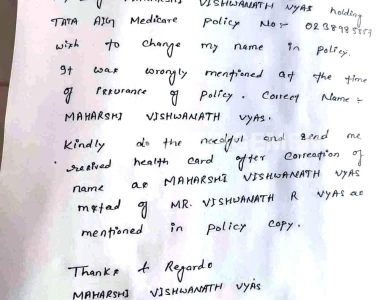 MAHARSHI VISHWANATH VYAS holding
TATA AIG Medicare Policy No:-
wish to change my name in policy.
It was wrongly mentioned at the time
of issurance of policy. Correct Name:-
MAHARSHI VISHWANATH VYAS.
Kindly do the needful and send me
revised health card after correation of
name as MAHARSHI VISHWANATH VYAS
instad of MR. VISHWANATH R VYAS as
mentioned in policy copy.
Thanks & Regards
MAHARSHI VISHWANATH VYAS